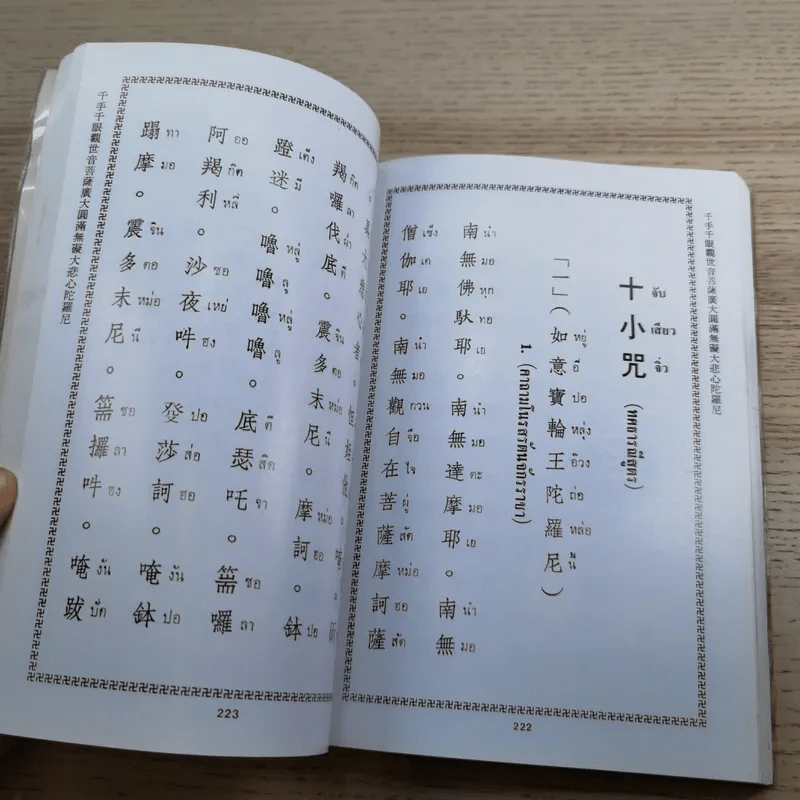 千手千眼觀世音菩薩廣大圓滿無礙大悲心陀羅尼
十小咒 (ทศธารณีสูตร)
จับ เสียว จิ่ว
「一」(如意寶輪王陀羅尼)
หยู่ อี่ ปอ หลุ่ง อ๊วง ถ่อ หล่อ นี้
1. (คาถามโนรสรัตนจักรราชา)
南無佛馱耶。南無達摩耶。南無
นำ มอ หุก ทอ เย นำ มอ ตะ มอ เย นำ มอ
僧伽耶。南無觀自在菩薩摩訶薩
เซ็ง เค เย นำ มอ กวน จือ ไจ ผู่ สัด หม่อ ฮอ สัด
222
大悲心者。
羯囉伐底。震多末尼。摩訶。鉢
กิด ลา ฝา ตี จิน ตอ หม่อ นี หม่อ ฮอ ปอ
蹬迷。嚕嚕嚕嚕。底瑟吒。篅囉
เต็ง มี หลู่ ลู หลู่ ลู ตี สิด จา ซอ ลา
阿羯利。沙夜吽。癹莎訶。唵鉢
ออ กิด หลี่ ซอ เหย่ ฮง ปอ ส่อ ฮอ งัน ปอ
蹋摩。震多末尼。篅攞吽。唵跋
ทา มอ จิน ตอ หม่อ นี ซอ ลา ฮง งัน ปัด
千手千眼觀世音菩薩廣大圓滿無礙大悲心陀羅尼
223